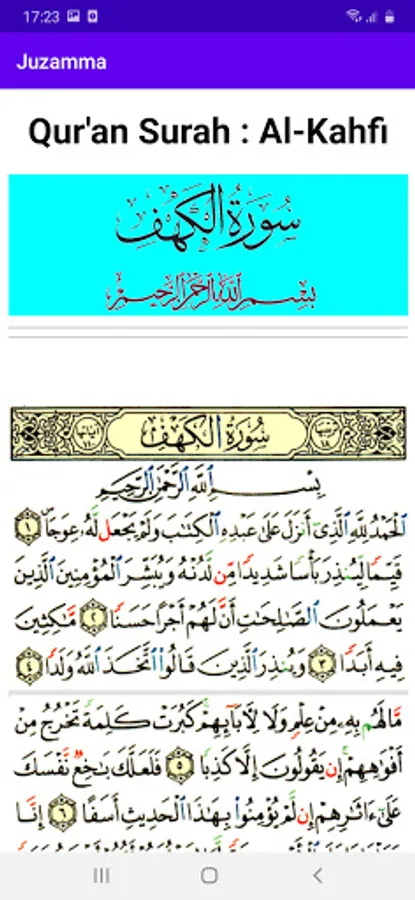 17:23
Juzamma
Qur'an Surah : Al-Kahfi
سُورَةُ الْكَهْفِ
بِسْمِ اللَّهِ الرَّحْمَٰنِ الرَّحِيمِ
سُورَةُ الْكَهْفِ
بِسْمِ اللَّهِ الرَّحْمَٰنِ الرَّحِيمِ
الْحَمْدُ لِلَّهِ الَّذِي أَنزَلَ عَلَىٰ عَبْدِهِ الْكِتَابَ وَلَمْ يَجْعَل لَّهُ عِوَجًا ١
قَيِّمًا لِّيُنذِرَ بَأْسًا شَدِيدًا مِّن لَّدُنْهُ وَيُبَشِّرَ الْمُؤْمِنِينَ الَّذِينَ
يَعْمَلُونَ الصَّالِحَاتِ أَنَّ لَهُمْ أَجْرًا حَسَنًا ٢ مَّاكِثِينَ
فِيهِ أَبَدًا ٣ وَيُنذِرَ الَّذِينَ قَالُوا اتَّخَذَ اللَّهُ وَلَدًا ٤
مَّا لَهُم بِهِ مِنْ عِلْمٍ وَلَا لِآبَائِهِمْ كَبُرَتْ كَلِمَةً تَخْرُجُ مِنْ
أَفْوَاهِهِمْ إِن يَقُولُونَ إِلَّا كَذِبًا ٥ فَلَعَلَّكَ بَاخِعٌ نَّفْسَكَ
عَلَىٰ آثَارِهِمْ إِن لَّمْ يُؤْمِنُوا بِهَٰذَا الْحَدِيثِ أَسَفًا ٦ إِنَّا